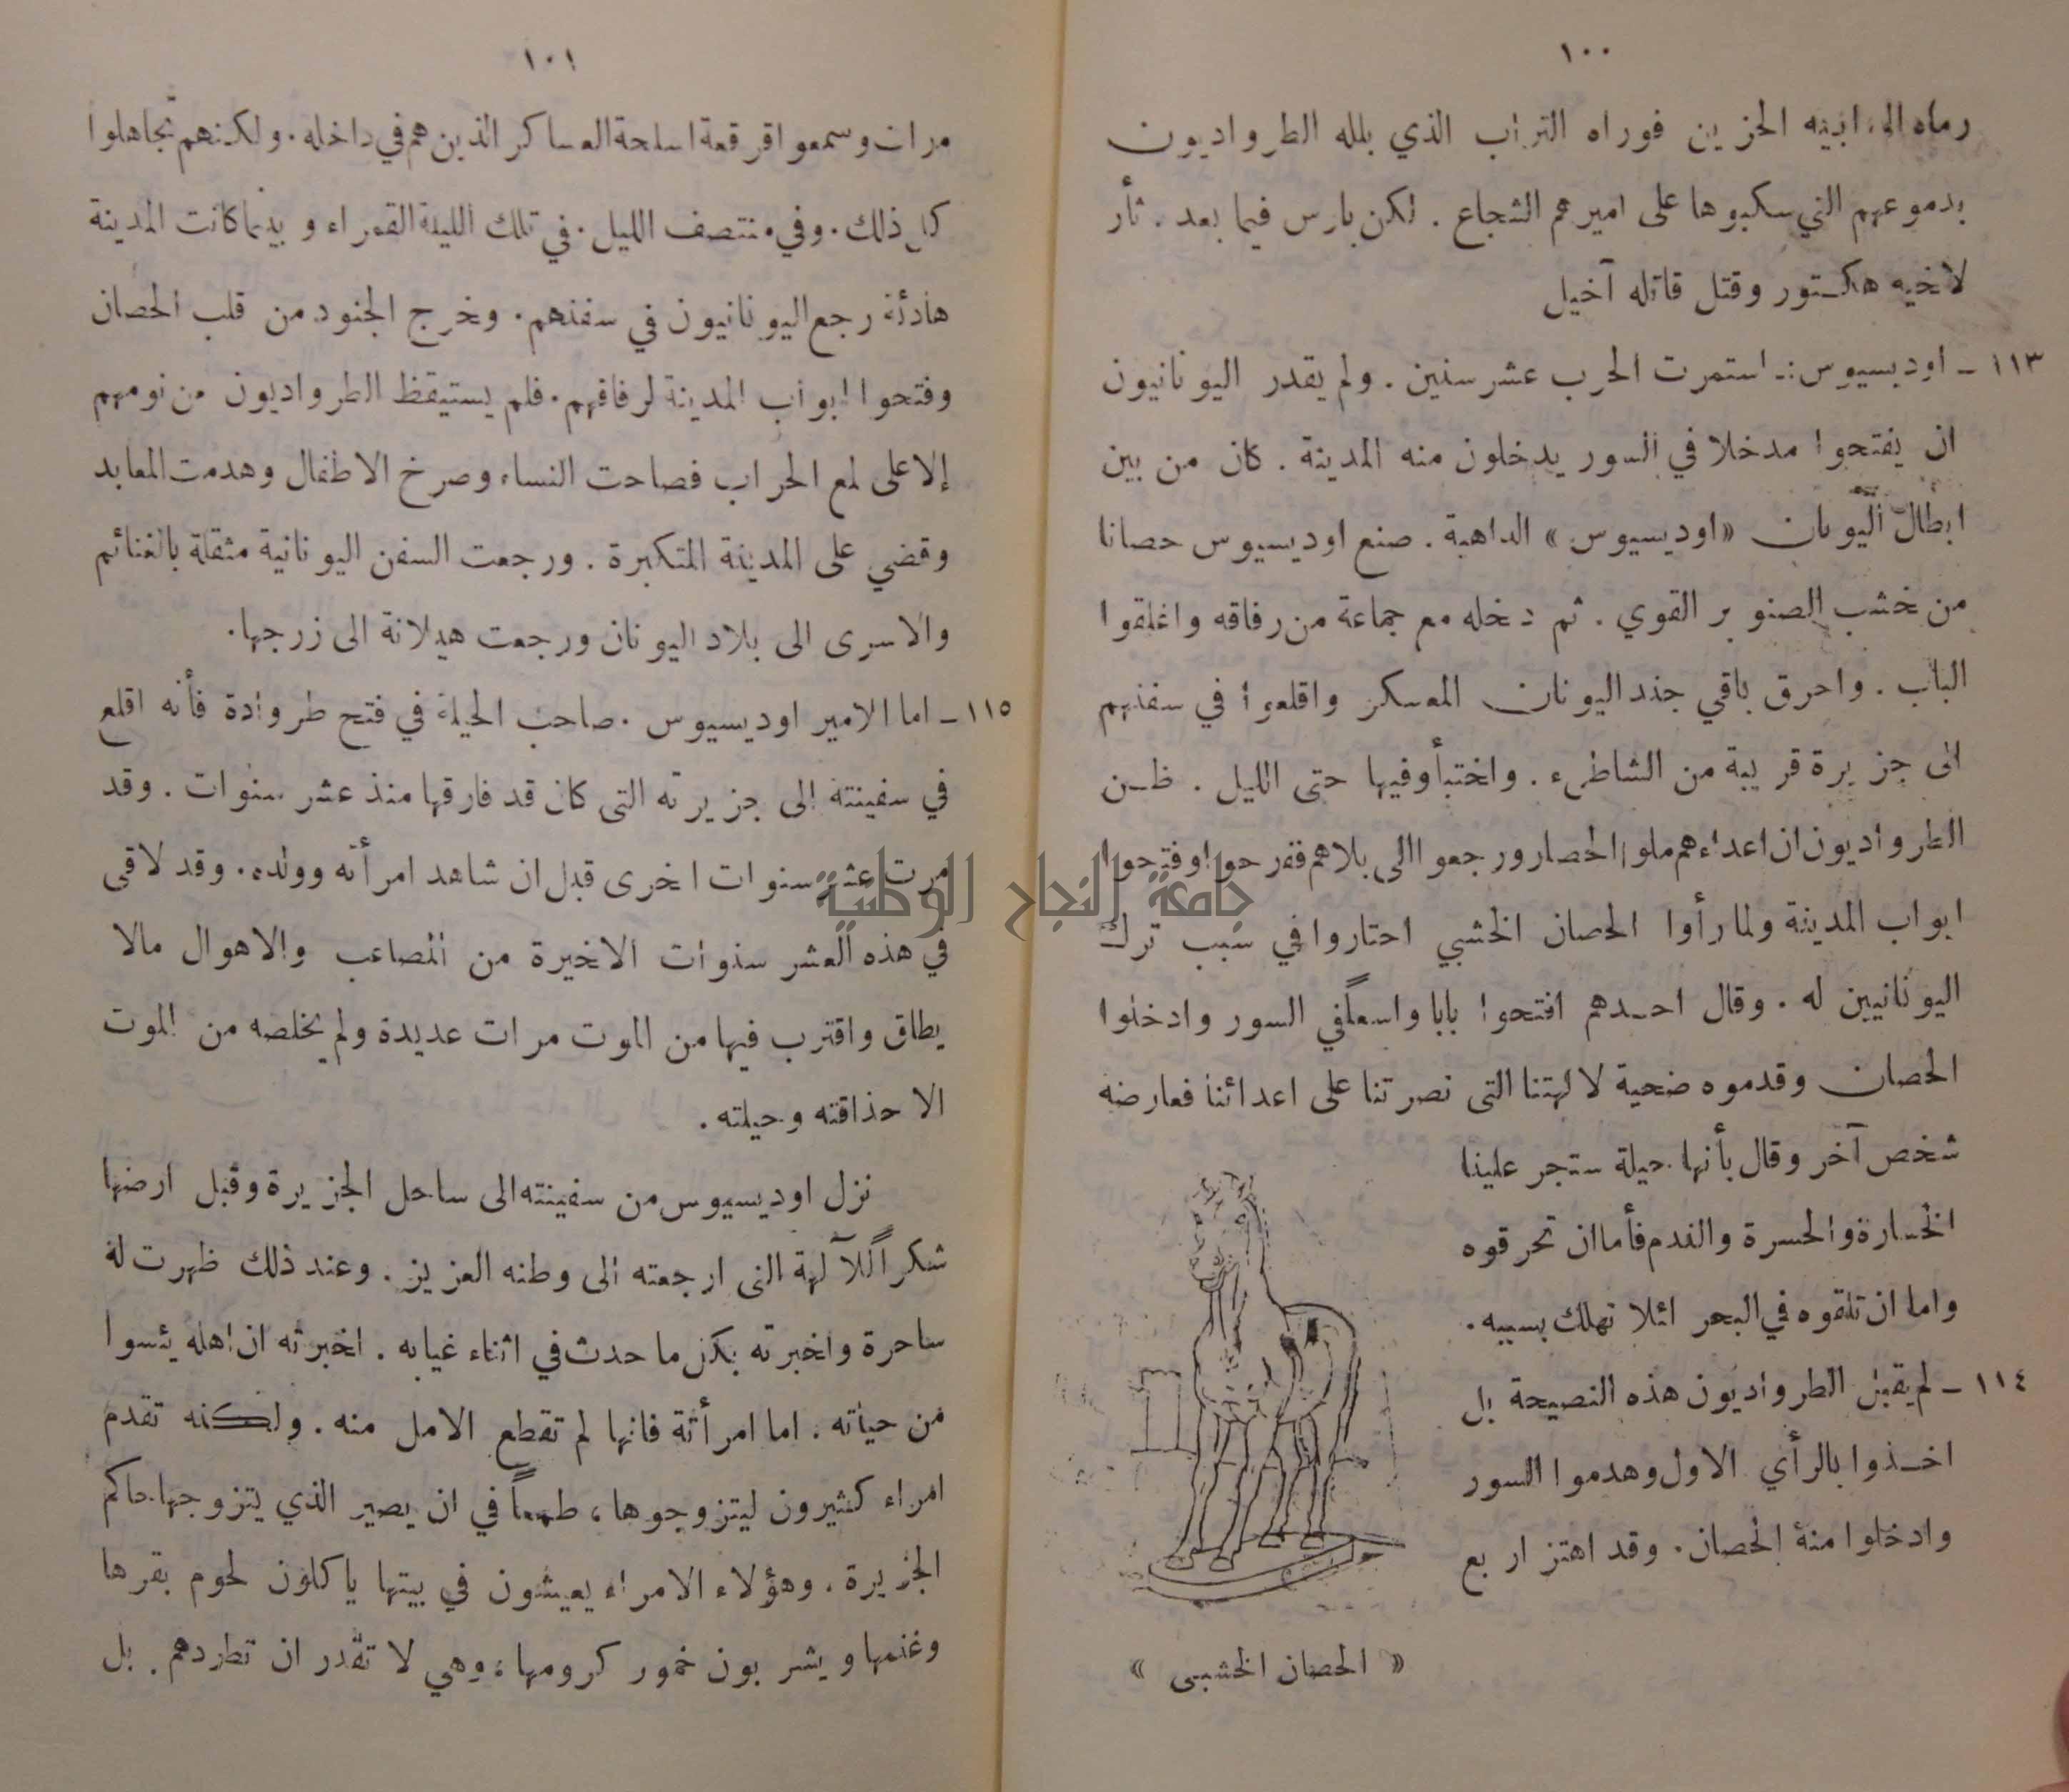 ١٠٠
رماه الى ابيه الحزين فوراه التراب الذي بلله الطرواديون
بدموعهم التي سكبوها على اميرهم الشجاع . لكن بارس فيما بعد . ثأر
لاخيه هكتور وقتل قاتله آخيل
١١٣ ـ اوديسيوس :ـ استمرت الحرب عشر سنين . ولم يقدر اليونانيون
ان يفتحوا مدخلا في السور يدخلون منه المدينة . كان من بين
ابطال اليونان « اوديسيوس » الداهية . صنع اوديسيوس حصانا
من خشب الصنوبر القوي . ثم دخله مع جماعة من رفاقه واغلقوا
الباب . واحرق باقي جند اليونان المعسكر واقلعوا في سفنهم
الى جزيرة قريبة من الشاطىء . واختبأوفيها حتى الليل . ظن
الطرواديون ان اعداءهم ملوا الحصار ورجعوا الى بلاهم ففرحوا وفتحوا
ابواب المدينة ولما رأوا الحصان الخشبي احتاروا في سبب ترك
اليونانيين له . وقال احدهم افتحوا بابا واسعاً في السور وادخلوا
الحصان وقدموه ضحية لالهتنا التى نصرتنا على اعدائنا فعارضه
شخص آخر وقال بأنها حيلة ستجر علينا
الخسارة والحسرة والندم فأما ان تحرقوه
واما ان تلقوه في البحر لئلا نهلك بسببه .
١١٤ ـ لم يقبل الطرواديون هذه النصيحة بل
اخذوا بالرأي الاول وهدموا السور
وادخلوا منه الحصان . وقد اهتز اربع
« الحصان الخشبى »
١٠١
مرات وسمعوا قرقعة اسلحة العساكر الذين هم في داخله . ولكنهم تجاهلوا
كل ذلك . وفي منتصف الليل . في تلك الليلة القمراء و بينما كانت المدينة
هادئة رجع اليونانيون في سفنهم . وخرج الجنود من قلب الحصان
وفتحوا ابواب المدينة لرفاقهم . فلم يستيقظ الطرواديون من نومهم
إلا على لمع الحراب فصاحت النساء وصرخ الاطفال وهدمت المعابد
وقضي على المدينة المتكبرة . ورجعت السفن اليونانية مثقلة بالغنائم
والاسرى الى بلاد اليونان ورجعت هيلانة الى زرجها .
١١٥ ـ اما الامير اوديسيوس . صاحب الحيلة في فتح طروادة فأنه اقلع
في سفينته الى جزيرته التى كان قد فارقها منذ عشر سنوات . وقد
مرت عشر سنوات اخرى قبل ان شاهد امرأته وولده . وقد لاقى
في هذه العشر سنوات الاخيرة من المصاعب والاهوال مالا
يطاق واقترب فيها من الموت مرات عديدة ولم يخلصه من الموت
الا حذاقته وحيلته .
نزل اوديسيوس من سفينته الى ساحل الجزيرة وقبل ارضها
شكراً للآلهة التى ارجعته الى وطنه العزيز . وعند ذلك ظهرت له
ساحرة واخبرته بكل ما حدث في اثناء غيابه . اخبرته ان اهله يئسوا
من حياته . اما امرأتة فانها لم تقطع الامل منه . ولكنه تقدم
امراء كثيرون ليتزوجوها ، طمعاً في ان يصير الذي يتزوجها حاكم
الجزيرة . وهؤلاء الامراء يعيشون في بيتها ياكلون لحوم بقرها
وغنمها ويشربون خمور كرومها ؛ وهي لا تقدر ان تطردهم . بل
جامعة النجاح الوطنية